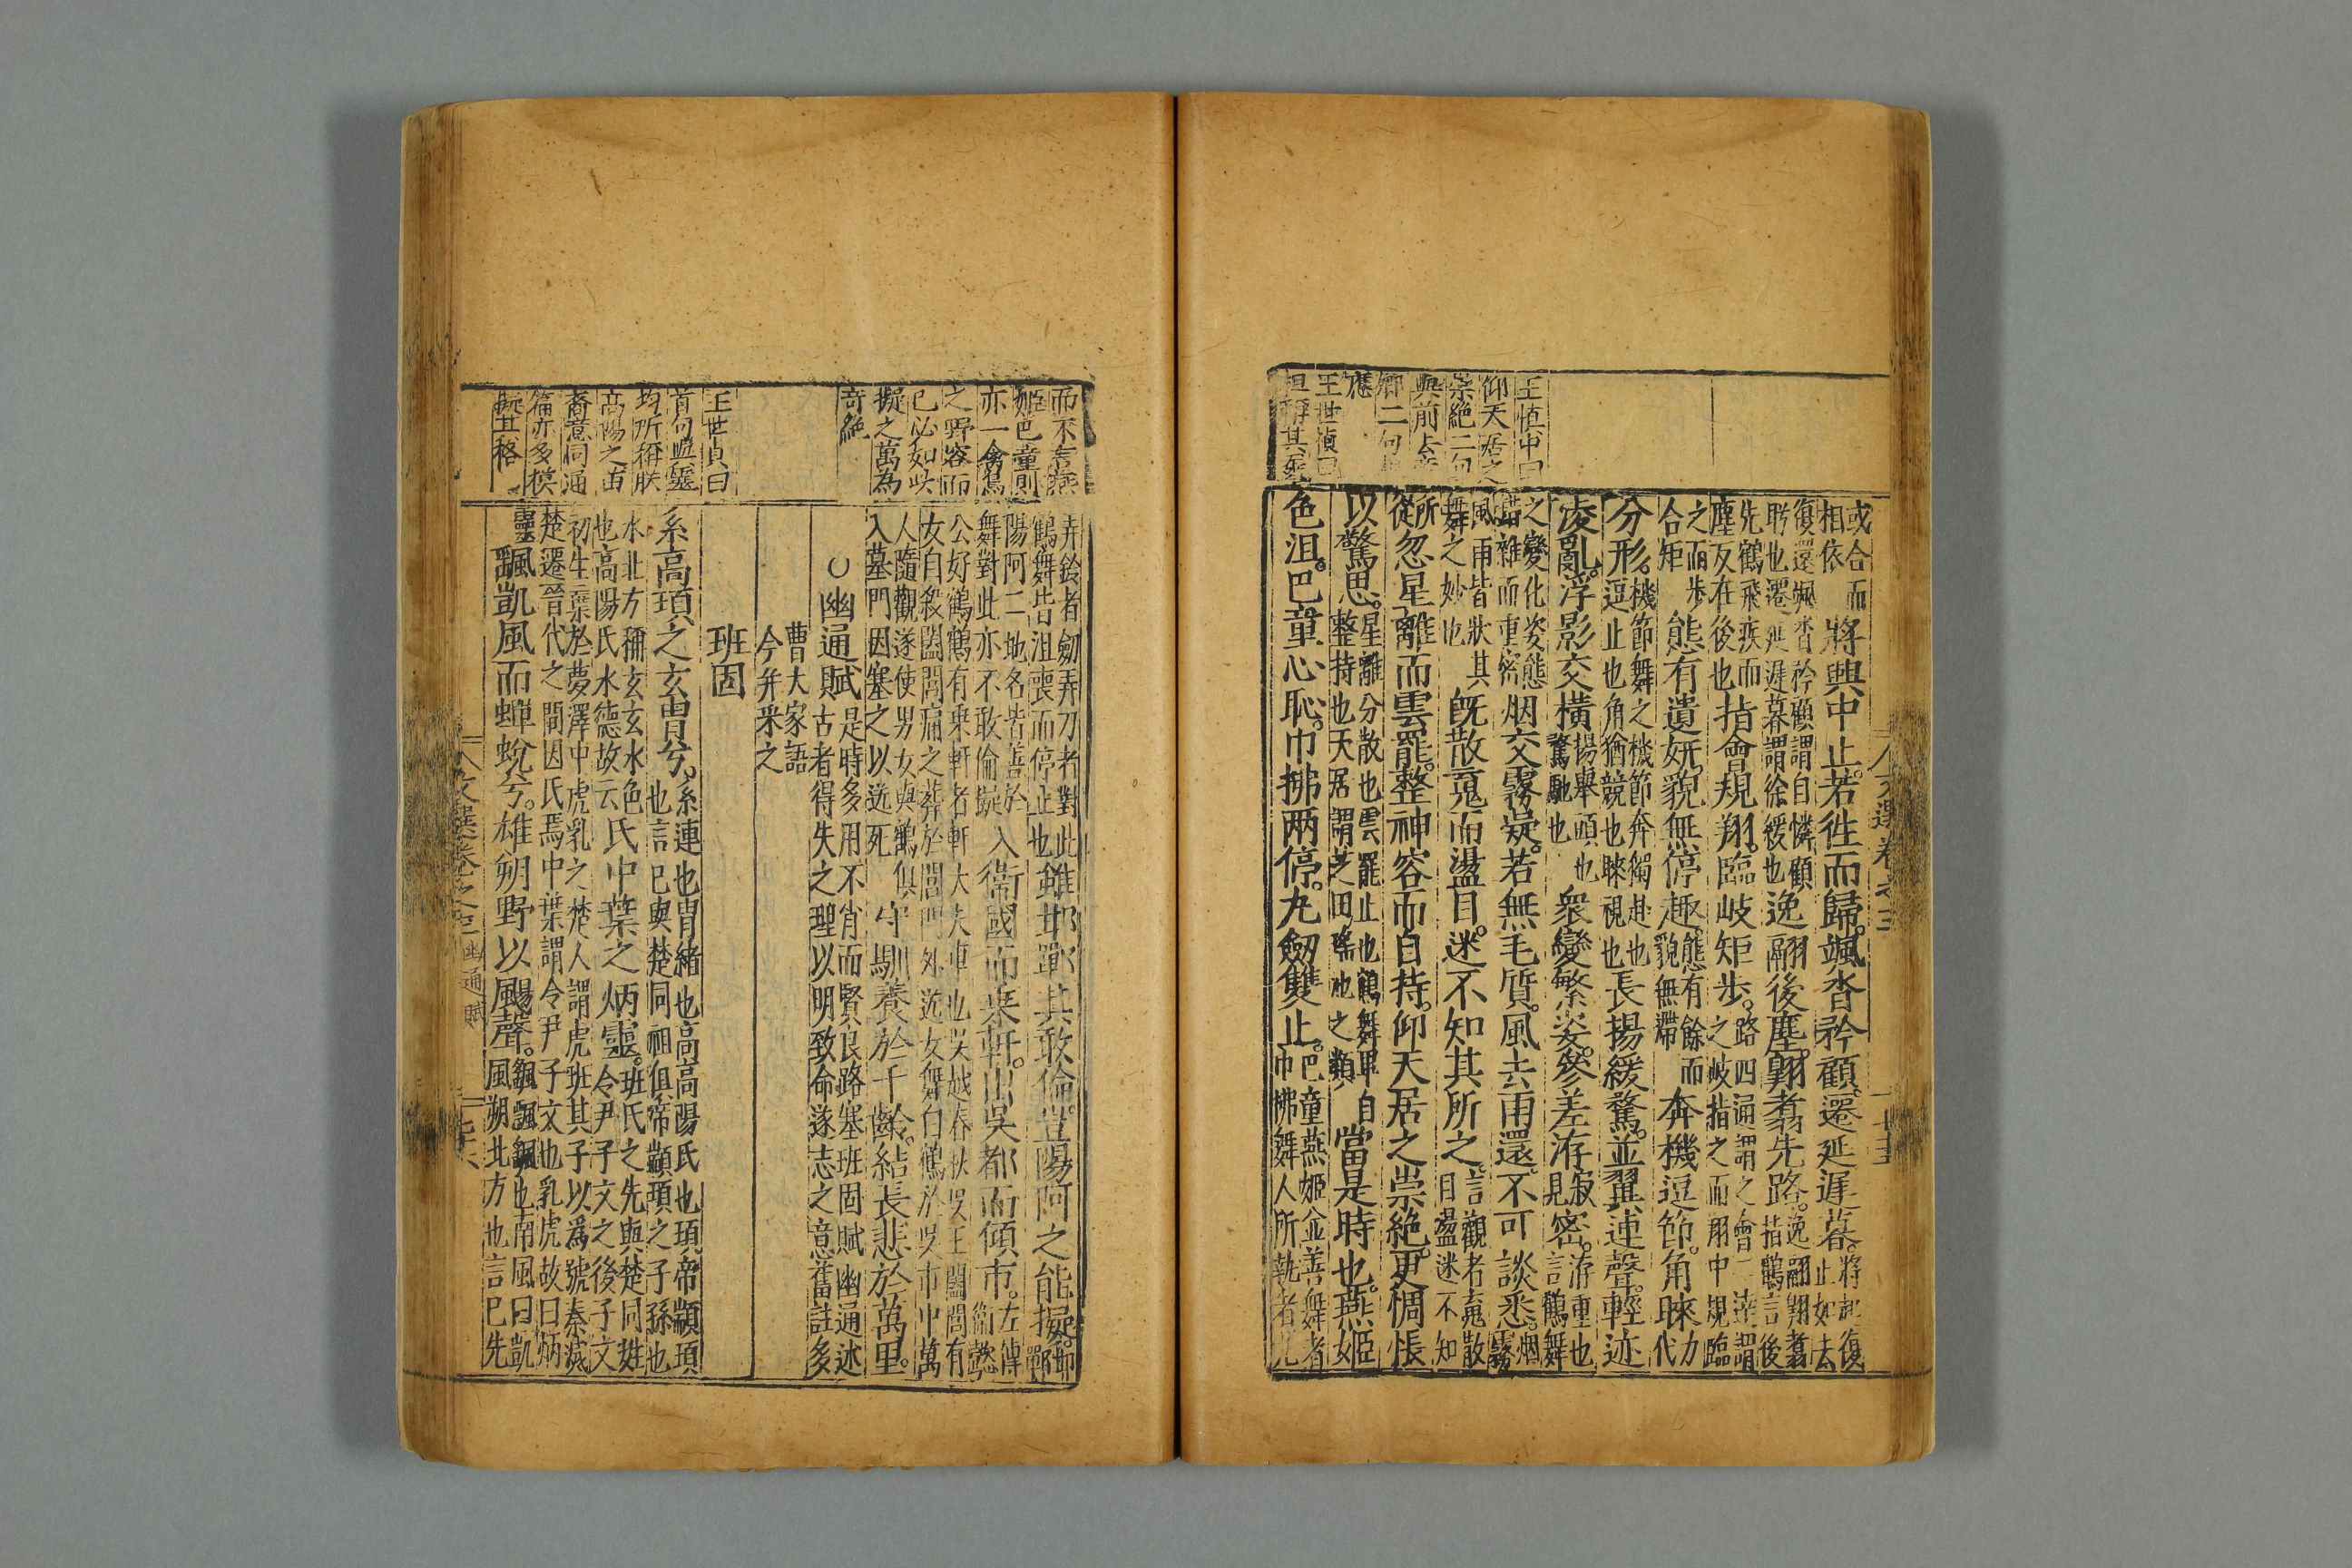 王慎中曰
仰天居之
崇絕二句
與前
卿二句
應
王世貞曰
但稱其舞
或合而相依將興中止。若往而歸。颯沓矜顧。遷延遲暮。將起復止如去
復還颯沓矜顧謂自憐顧盻也遷延遲暮謂徐緩也逸翮後塵。翱翥先路。逸翮翱翥指鶴言後
先鶴飛疾而塵反在後也指會規翔。臨岐矩步。路四通謂之會二達謂之岐指之而翔中規臨
之而步合矩態有遺妍。貌無停趣。態有餘而貌無滯奔機逗節。角睞
分形。機節舞之機節奔獨赴也逗止也角猶競也睞視也長揚緩騖。並翼連聲。輕迹
凌亂。浮影交橫揚舉頭也騖馳也衆變繁姿。參差洊密。洊重也言鶴舞
之變化姿態錯雜而重密烟交霧凝。若無毛質。風去雨還。不可談悉。烟霧
風雨皆狀其舞之妙也既散䰟而盪目。迷不知其所之。言觀者䰟散目盪迷不知
所從忽星離而雲罷。整神容而自持。仰天居之崇絕。更惆悵
以驚思。星離分散也雲罷止也鶴舞畢自整持也天居謂芝田瑤池之類當是時也。燕姬
色沮。巴童心恥。巾拂兩停。丸劒雙止。巴童燕姬並善舞者巾拂舞人所執者丸
而不言燕
姬巴童則
亦一禽鳥
之野容而
已必如此
擬之萬為
奇絕
王世貞曰
首句與離
均所稱朕
高陽之苗
裔意同通
篇亦多模
擬其格
弄鈴者劒弄刀者對此鶴舞皆沮喪而停止也雖邯鄲其敢倫。豈陽阿之能擬。邯鄲
陽阿二地名皆善於舞對此亦不敢倫擬入衛國而乘軒。出吳都而傾市。左傳衛懿
公好鶴鶴有乘軒者軒大夫車也吳越春秋吳王闔閭有女自殺闔閭痛之葬於閶門外送女舞白鶴於吳市中萬
人隨觀遂使男女與鶴俱入墓門因塞之以送死守馴養於千齡。結長悲於萬里。
○幽通賦是時多用不肖而賢良路塞班固賦幽通述古者得失之理以明致命遂志之意舊註多
曹大家語今并釆之
班固
系高頊之玄胄兮。系連也胄緒也高高陽氏也頊帝顓頊也言己與楚同祖俱帝顓頊之子孫也
水北方稱玄玄水色也高陽氏水德故云氏中葉之炳靈。班氏之先與楚同姓令尹子文之後子文
初生棄於夢澤中虎乳之楚人謂虎班其子以為號秦滅楚遷晉代之間因氏焉中葉謂令尹子文也乳虎故曰炳
靈飊凱風而蟬蛻兮。雄朔野以颺聲。飊飊飊也南風曰凱風朔北方也言己先
文選卷之三 幽通賦